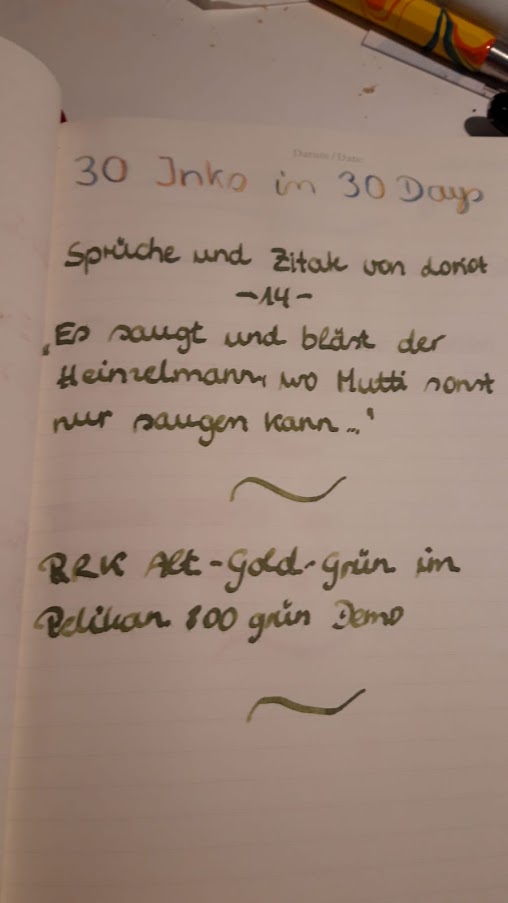 Datum / Date:
30 Inks in 30 Days
Sprüche und Zitate von Loriot
-14-
„Es saugt und bläst der
Heinzelmann, wo Mutti sonst
nur saugen kann..."
R&K Alt-Gold-Grün im
Pelikan 800 grün Demo